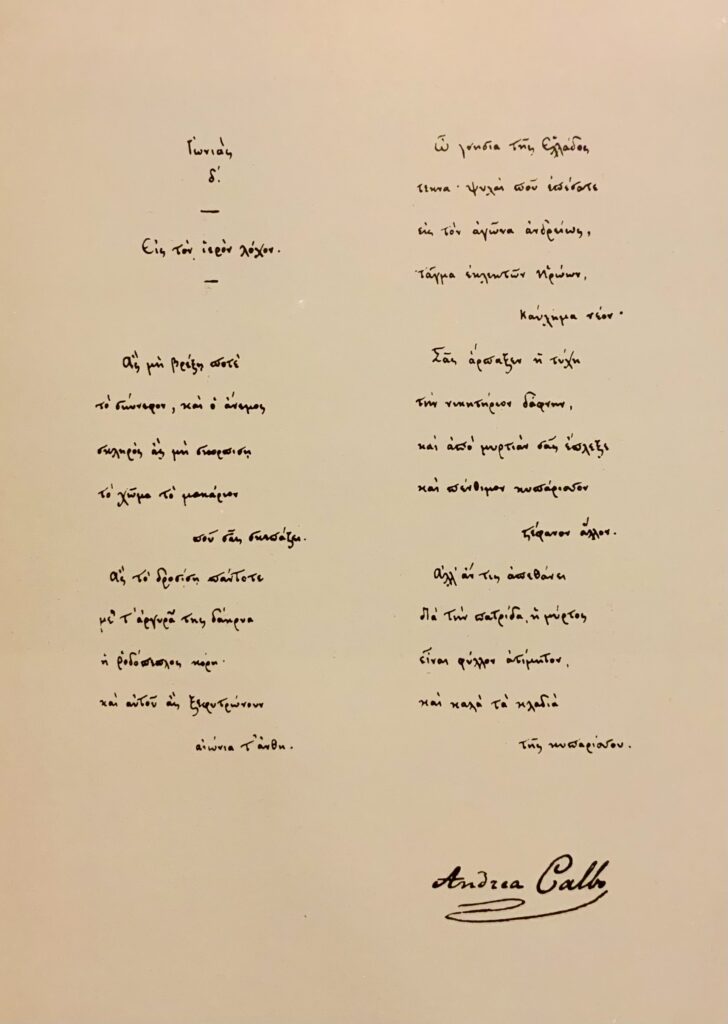 Ἰωνιὰς
δ΄.
Εἰς τὸν ἱερὸν λόχον.
Ἂς μὴ βρέξῃ ποτὲ
τὸ σύννεφον, καὶ ὁ ἄνεμος
σκληρὸς ἂς μὴ σκορπίσῃ
τὸ χῶμα τὸ μακάριον
ποῦ σᾶς σκεπάζει.
Ἂς τὸ δροσίσῃ πάντοτε
μὲ τ' ἀργυρᾶ της δάκρυα
ἡ ῥοδόπεπλος κόρη·
καὶ αὐτοῦ ἂς ξεφυτρώνουν
αἰώνια τ' ἄνθη.
Ὦ γνησια τῆς Ἑλλάδος
τεκνα· ψυχαὶ ποῦ ἐπέσατε
εἰς τὸν ἀγῶνα ἀνδρείως,
τάγμα ἐκλεκτῶν Ἡρώων,
καύχημα νέον·
Σᾶς ἅρπαξεν ἡ τύχη
τὴν νικητήριον δάφνην,
καὶ ἀπὸ μυρτιὰν σᾶς ἔπλεξε
καὶ πένθιμον κυπάρισσον
ϛέφανον ἄλλον.
Ἀλλ' ἄν τις ἀπεθάνει
διὰ τὴν πατρίδα, ἡ μύρτος
εἶναι φύλλον ἀτίμητον,
καὶ καλὰ τὰ κλαδιὰ
τῆς κυπαρίσσου.
Andrea Calbo